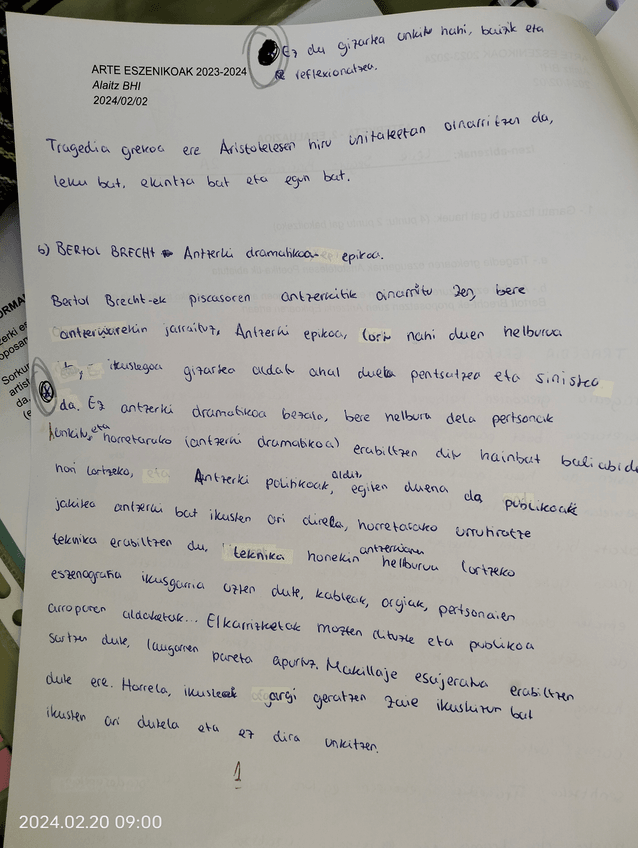 Ez du gizartea unkitu nahi, baizik eta
reflexionatzea.
ARTE ESZENIKOAK 2023-2024
Alaitz BHI
2024/02/02
Tragedia grekoa ere Aristotelesen hiru unitateetan oinarritzen da,
leku bat, ekintza bat eta egun bat.
b) BERTOL BRECHT Antzerki dramatikoa epikoa.
Bertol Brecht-ek piscasoren antzerkitik oinarritu zen, bere
antzerkiarekin jarraituz, Antzerki epikoa, lortu nahi duen helburua
ikuslegoa gizartea aldatu ahal duela pentsatzea eta sinistea
da. Ez antzerki dramatikoa bezala, bere helbura dela pertsonak
unkitu, eta horretarako (antzerki dramatikoa) erabiltzen ditu hainbat baliabide
hori lortzeko, Antzerki politikoak, aldiz, egiten duena da publikoak
jakitea antzerki bat ikusten ari direla, horretarako urrutiratze
teknika erabiltzen du, teknika honekin antzerkiaren helburua lortzeko
eszenografia ikusgarria uzten dute, kableak, argiak, pertsonaien
arroparen aldaketak... Elkarrizketak mozten dituzte eta publikoa
sartzen dute, laugarren pareta apurtuz. Makillaje esajeratua erabiltzen
dute ere. Horrela, ikusleak argi geratzen zaie ikuskizun bat
ikusten ari dutela eta ez dira unkitzen.
1
2024.02.20 09:00